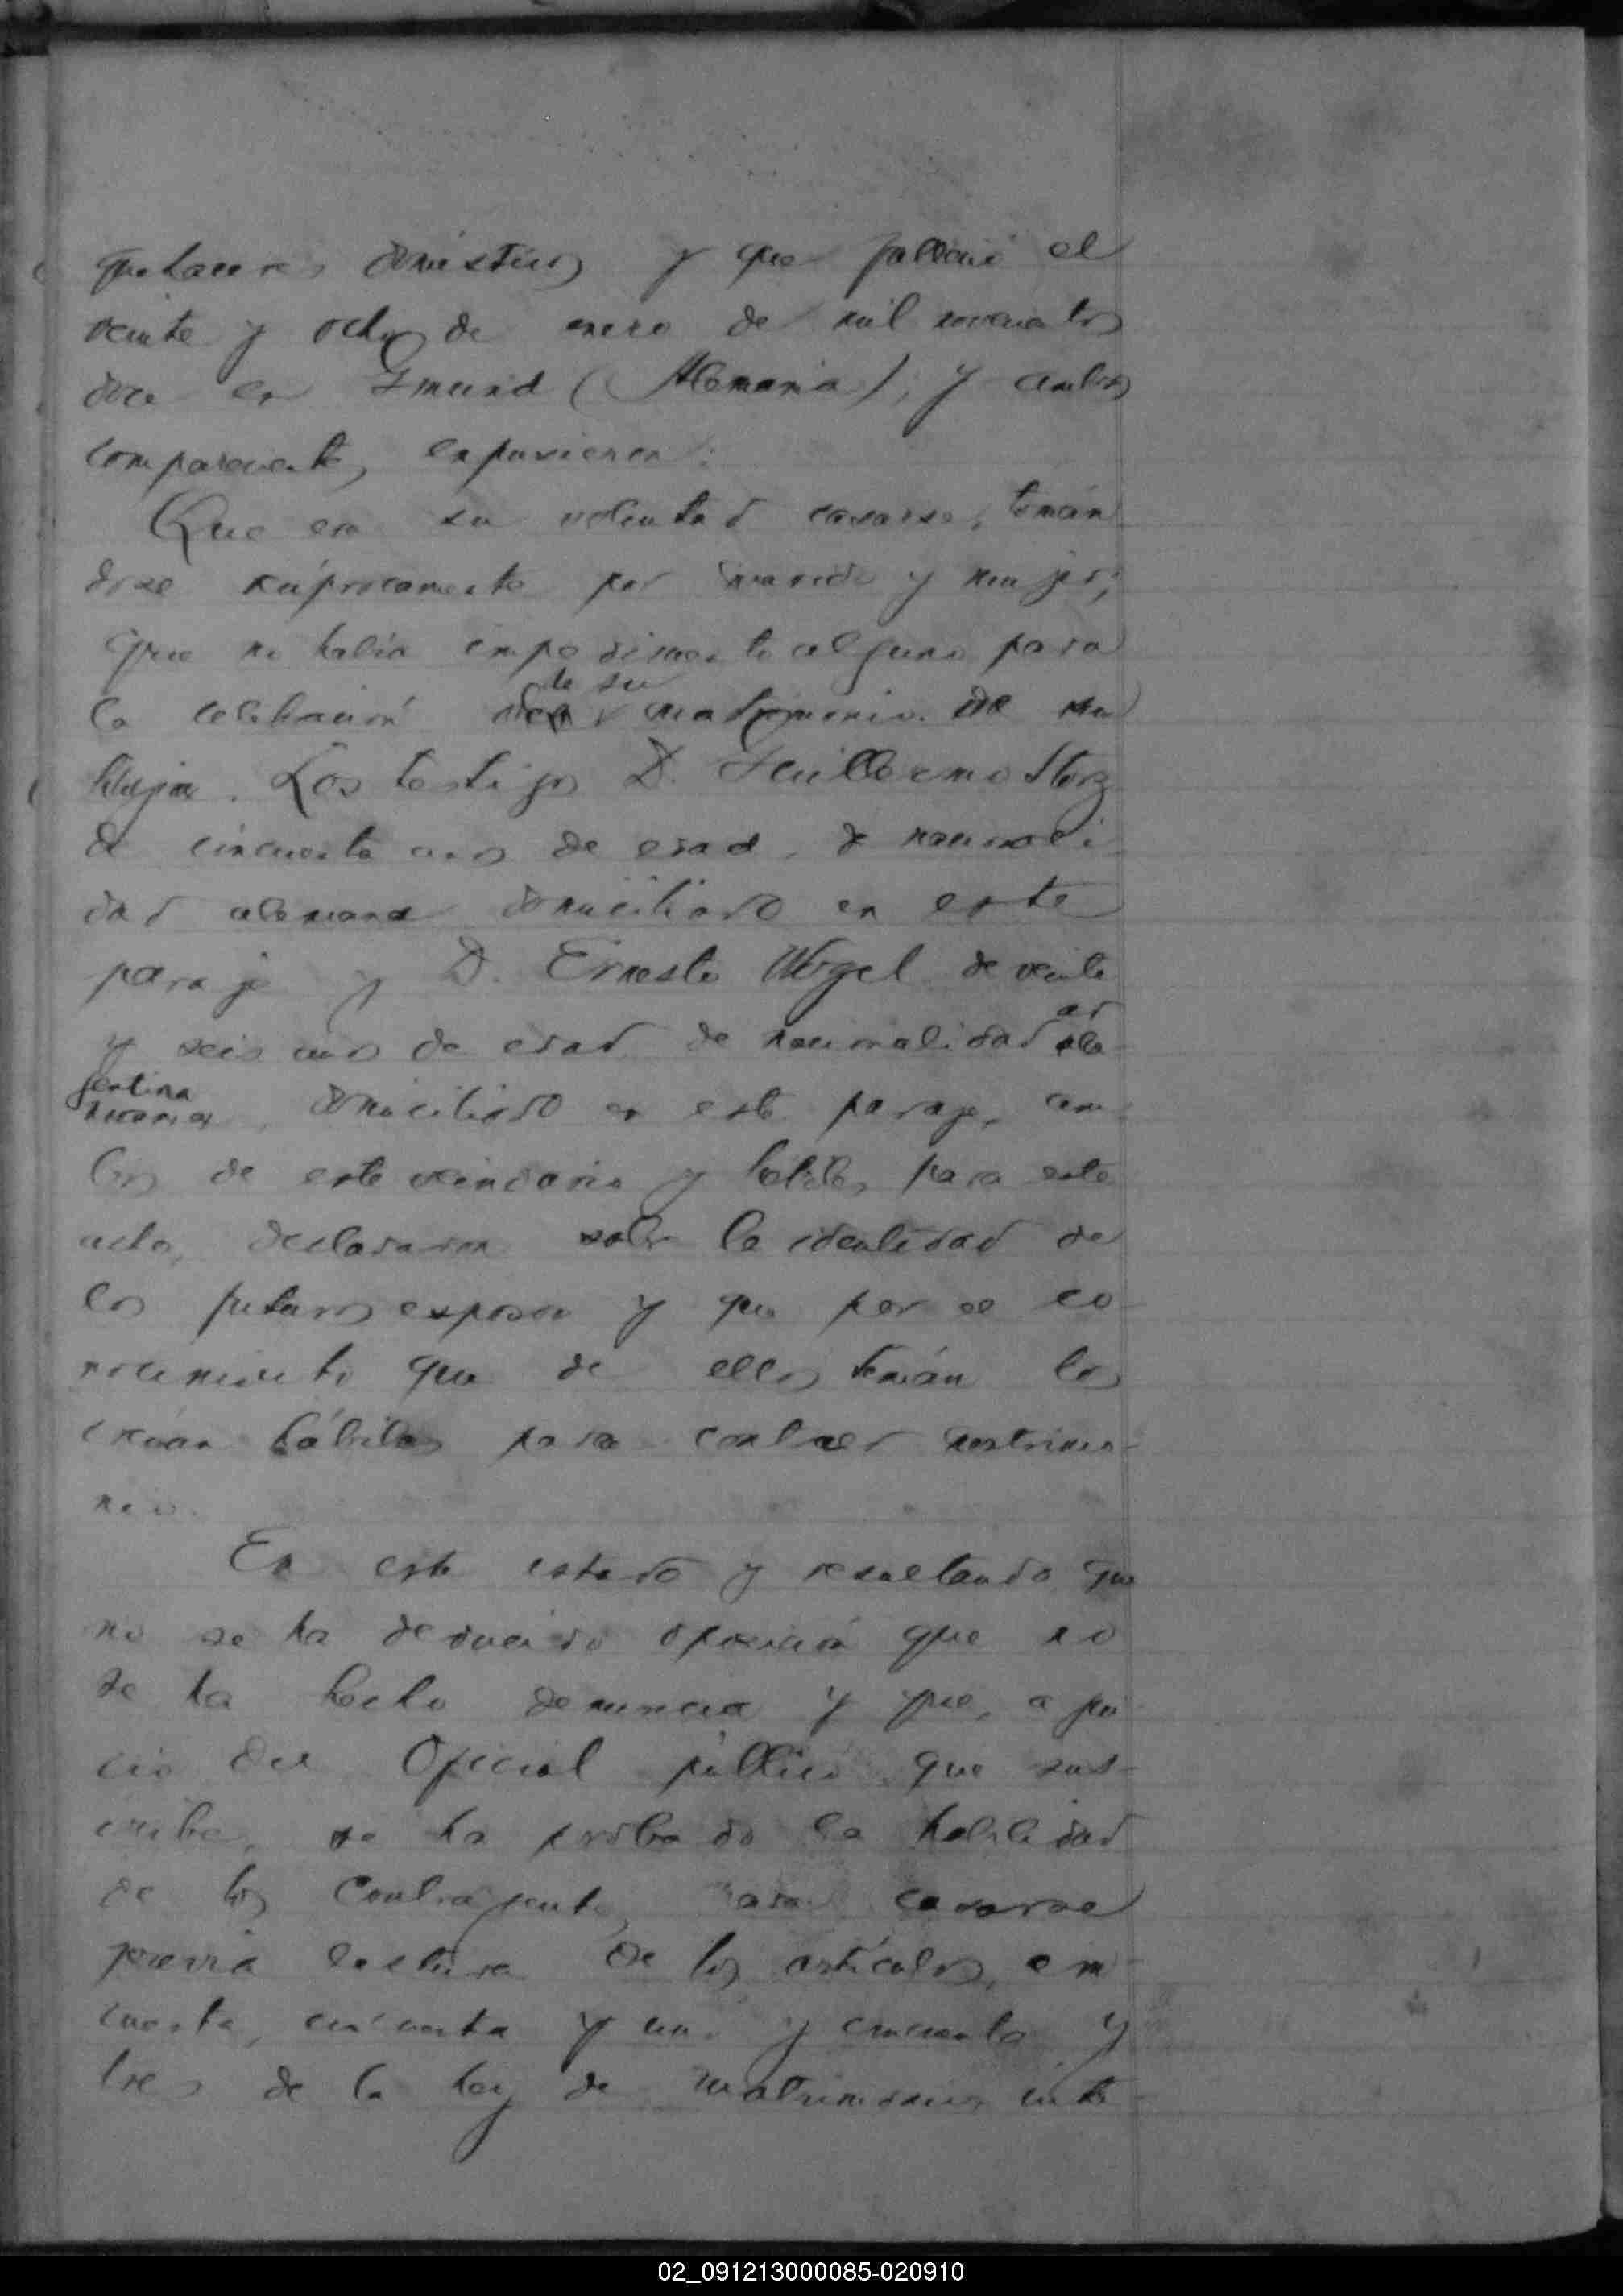 quehaceres domésticos y que falleció el
veinte y ocho de enero de mil novecientos
doce en Gmund (Alemania); y ambos
comparecientes, expusieron:
Que era su voluntad casarse, tomán
dose recíprocamente por marido y mujer;
que no había impedimento alguno para
de su
la celebración del matrimonio. de su
hija. Los testigos D. Guillermo Storz
de cincuenta años de edad, de nacionali
dad alemana domiciliado en este
paraje y D. Ernesto Wogel de veinte
ar
y seis años de edad de nacionalidad ale
gentina
mana, domiciliado en este paraje, am
bos de este vecindario y hábiles para este
acto, declararon sobre la identidad de
los futuros esposos y que por el co-
nocimiento que de ellos tenían los
creían hábiles para contraer matrimo-
nio.
En este estado y resultando que
no se ha deducido oposición que no
se ha hecho denuncia y que, a jui
cio del Oficial público que sus-
cribe, se ha probado la habilidad
de los contrayentes para casarse
previa lectura de los artículos, cin
cuenta, cincuenta y uno y cincuenta y
tres de la ley de matrimonio, inte-
02_091213000085-020910